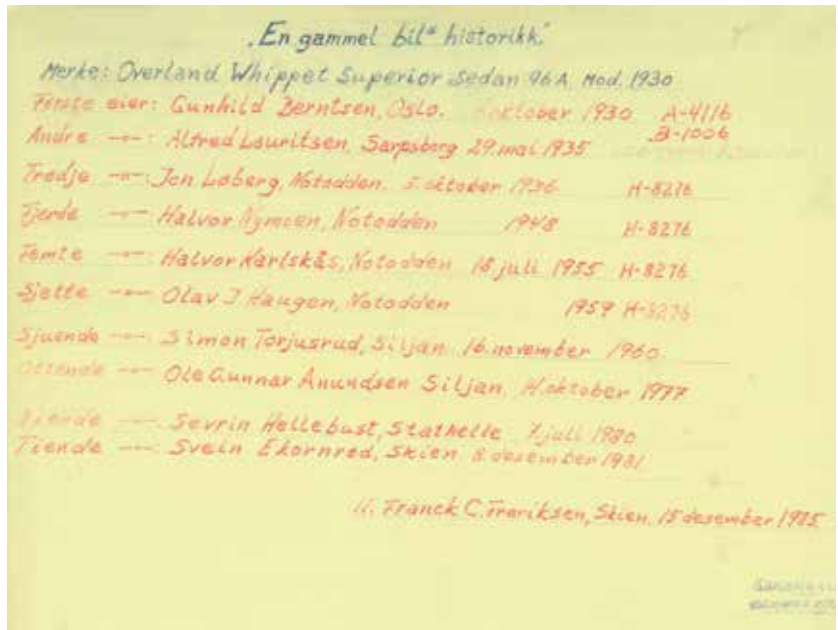 „En gammel bil" historikk."
Merke: Overland Whippet Superior Sedan 96A, Mod. 1930
Første eier: Gunhild Berntsen, Oslo. oktober 1930 A-4116
B-1006
Andre -"-: Alfred Lauritsen, Sarpsborg 29. mai 1935
Tredje -"-: Jon Løberg, Notodden. 5. oktober 1936 H-8276
Fjerde -"- Halvor Nymoen, Notodden 1948 H-8276
Femte -"-: Halvor Karlskås, Notodden 18. juli 1955 H-8276
Sjette -"- Olav J Haugen, Notodden 1959 H-8276
Sjuende -"-: Simon Torjusrud, Siljan. 16. november 1960.
Ottende -"- Ole Gunnar Anundsen Siljan. oktober 1977
Niende -"- Sevrin Hellebust, Stathelle 7. juli 1980
Tiende -"- Svein Ekornrød, Skien 8. desember 1981
11. Franck C. Freriksen, Skien, 15 desember 1985